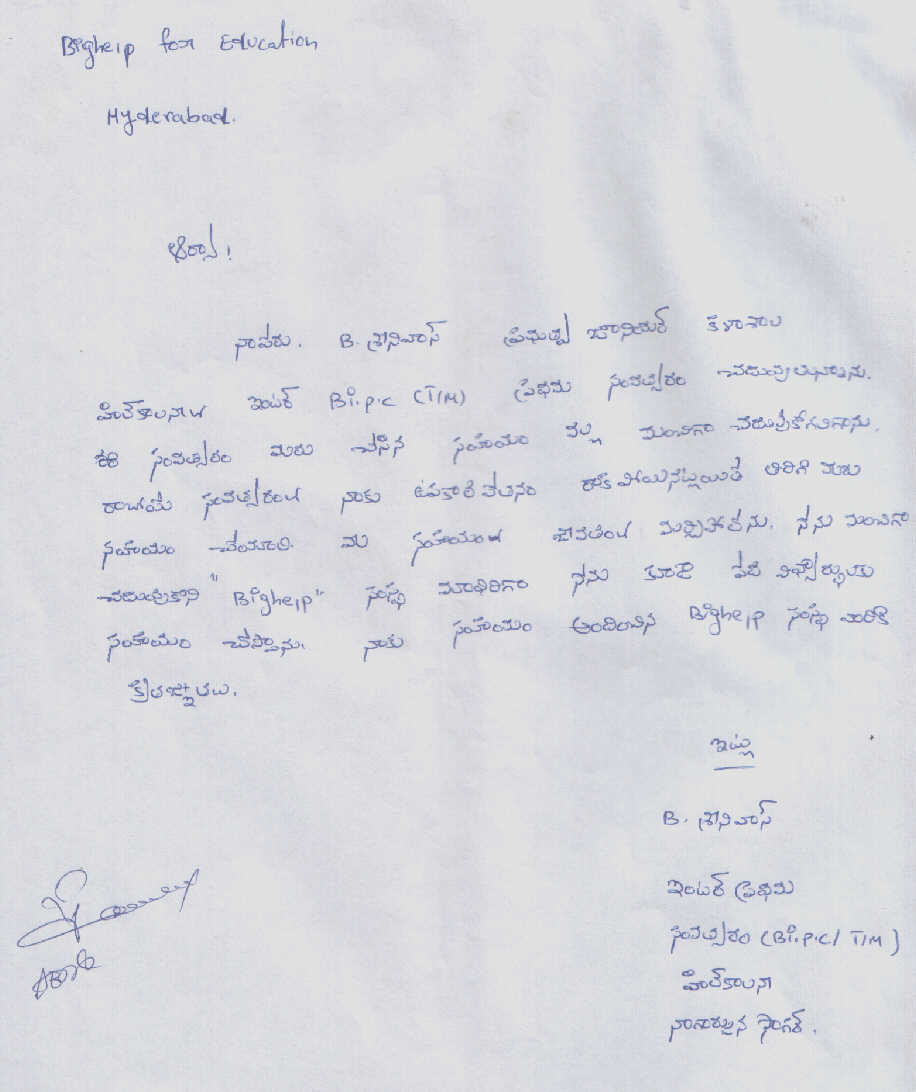 Bighelp for Education
Hyderabad.
ఆర్యా!
నాపేరు. B. శ్రీనివాస్ ప్రభుత్వ జూనియర్ కళాశాల
హిల్‌కాలనీలో ఇంటర్ Bi.p.c (T/M) ప్రథమ సంవత్సరం చదువుతున్నాను.
ఈ సంవత్సరం మీరు చేసిన సహాయం వల్ల మంచిగా చదువుకోగలిగాను.
రాబోయే సంవత్సరంలో నాకు ఉపకార వేతనం రాక పోయినట్లయితే తిరిగి మీరు
సహాయం చేయాలి. మీ సహాయంను జీవితంలో మర్చిపోలేను. నేను మంచిగా
చదువుకొని "Bighelp" సంస్థ మాదిరిగా నేను కూడా పేద విద్యార్థులకు
సహాయం చేస్తాను. నాకు సహాయం అందించిన Bighelp సంస్థ వారికి
క్రితజ్ఞతలు.
ఇట్లు
B. శ్రీనివాస్
ఇంటర్ ప్రథమ
సంవత్సరం (Bi.p.c/ T/M)
హిల్‌కాలనీ
నాగార్జున సాగర్.